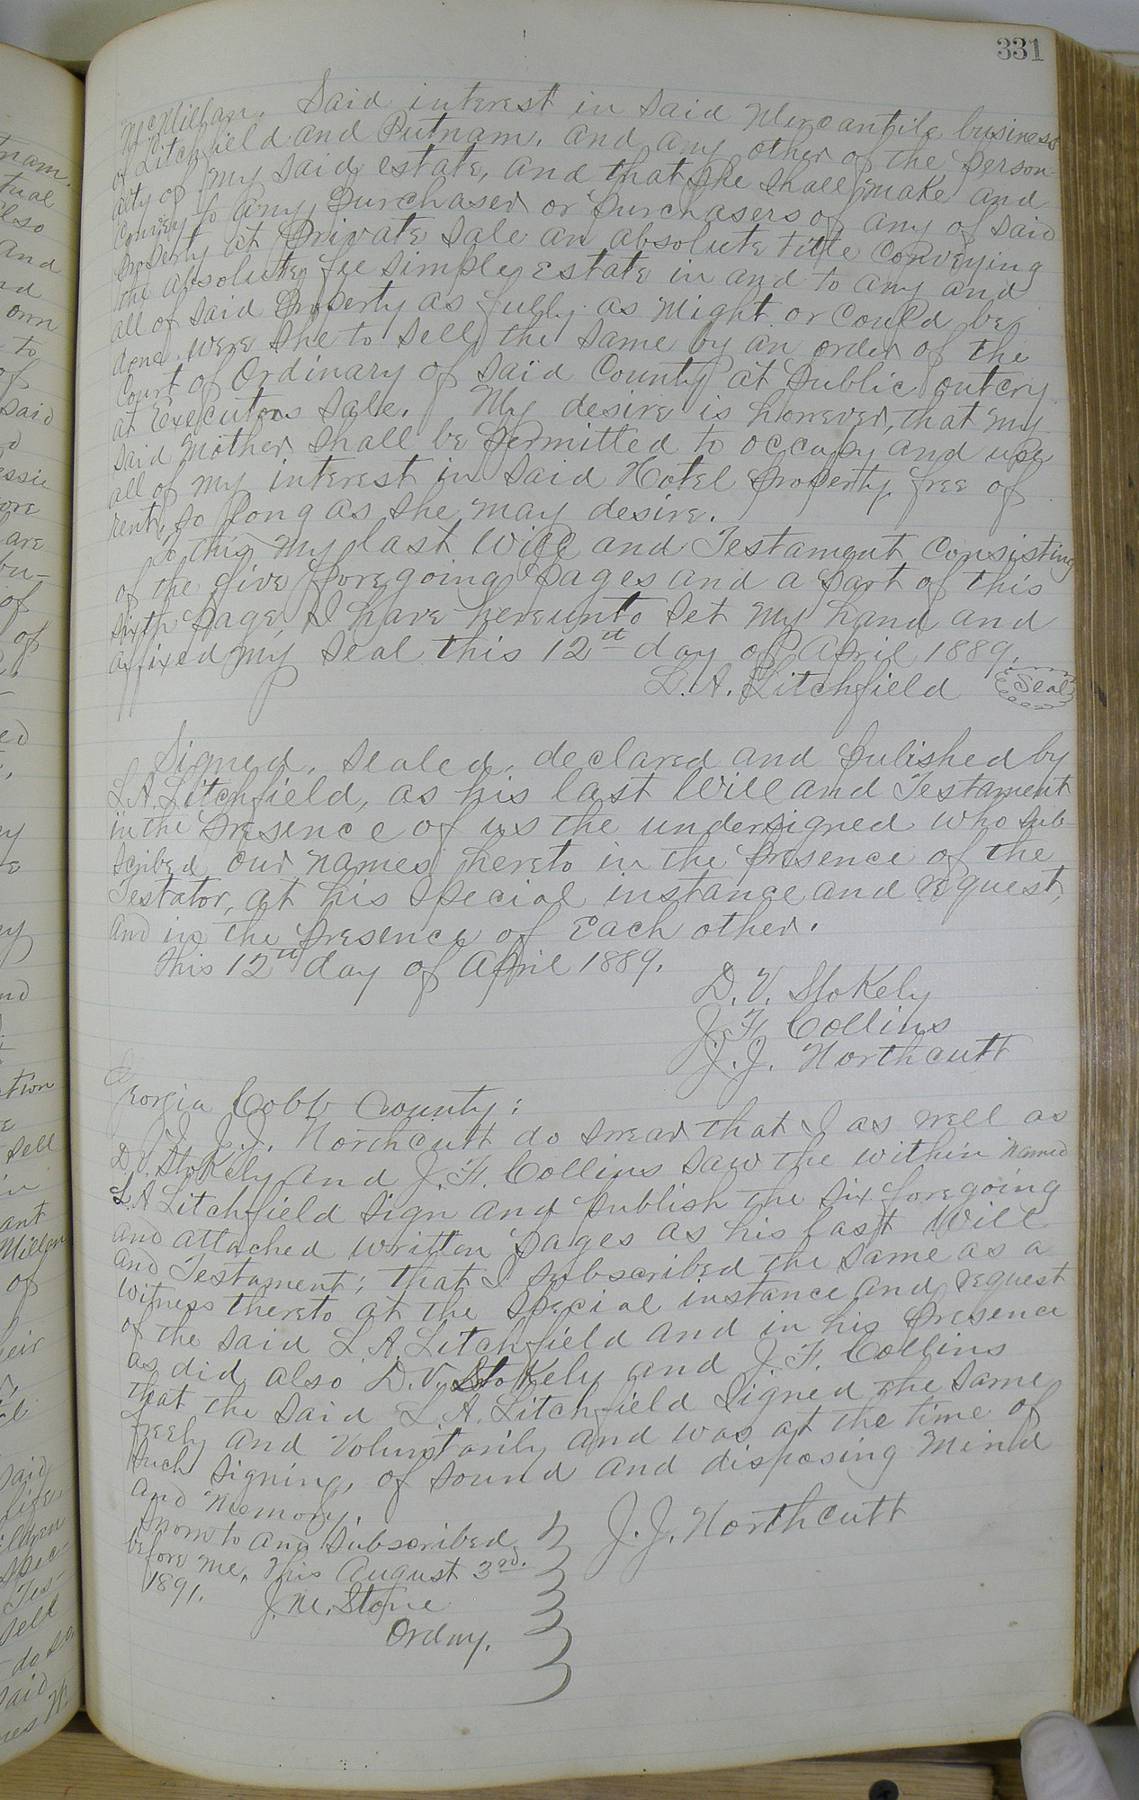 331
McMillan. Said interest in said Mercantile business
of Litchfield and Putnam, and any other of the person-
alty of my said estate, and that she shall make and
convey to any purchaser or purchasers of any of said
property at private sale an absolute title conveying
the absolute fee simple estate in and to any and
all of said property as fully as might or could be
done were she to sell the same by an order of the
Court of Ordinary of said County at public outcry
at Executors sale. My desire is however, that my
said Mother shall be permitted to occupy and use
all of my interest in said Hotel property free of
rent, so long as she may desire.
To this my last Will and Testament consisting
of the five foregoing pages and a part of this
sixth page, I have hereunto set my hand and
affixed my seal this 12th day of April 1889.
L. A. Litchfield (Seal)
Signed, sealed, declared and pulished by
L.A. Litchfield, as his last Will and Testament
in the presence of us the undersigned who sub-
scribed our names hereto in the presence of the
Testator, at his special instance and request,
and in the presence of each other.
This 12th day of April 1889.
D. V. Stokely
J. F. Collins
J. J. Northcutt
Georgia Cobb County:
I, J.J. Northcutt do swear that I as well as
D.V. Stokely and J. F. Collins saw the within named
L.A Litchfield sign and publish the six foregoing
and attached written pages as his last Will
and Testament; that I subscribed the same as a
witness thereto at the special instance and request
of the said L. A. Litchfield and in his presence
as did also D. V. Stokely and J. F. Collins
that the said L. A. Litchfield signed the same
freely and voluntarily and was at the time of
such signing, of sound and disposing mind
and memory.
Sworn to and subscribed
before me, this August 3rd.
1891.
J. M. Stone
Ordny.
J. J. Northcutt